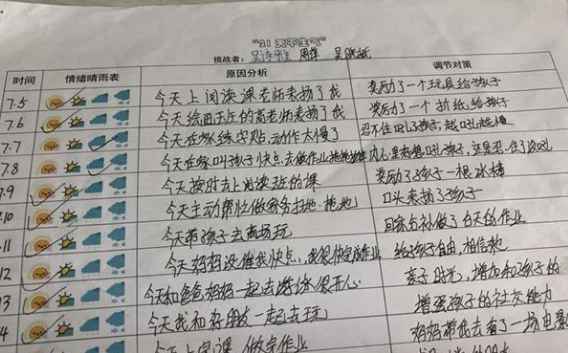 "21天不生气"
挑战者: 周倩
时间 情绪晴雨表 原因分析 调节对策
7.5 今天上阅读课老师表扬了我 奖励了一个玩具给孩子
7.6 今天绘画班的高老师表扬了我 奖励了一个给孩子
7.7 今天在家练字贴,动作太慢了 忍不住吼了孩子,越吼越慢
7.8 今天在家叫孩子快点去做作业
7.9 今天按时去上阅读班的课 奖励了孩子一根冰棒
.10 今天主动帮忙做家务扫地、拖地 口头表扬了孩子
.11 今天带孩子去商场玩 回家后补做了白天的作业
12 今天妈妈没催我快点, 给孩子自由,相信她
13 今天和爸爸妈妈一起去游泳很开心. 亲子时光,增加和孩子的
4 今天我和好朋友一起去玩 增强孩子的社交能力
今天上完课,做完作业 妈妈带我去看了一场电影